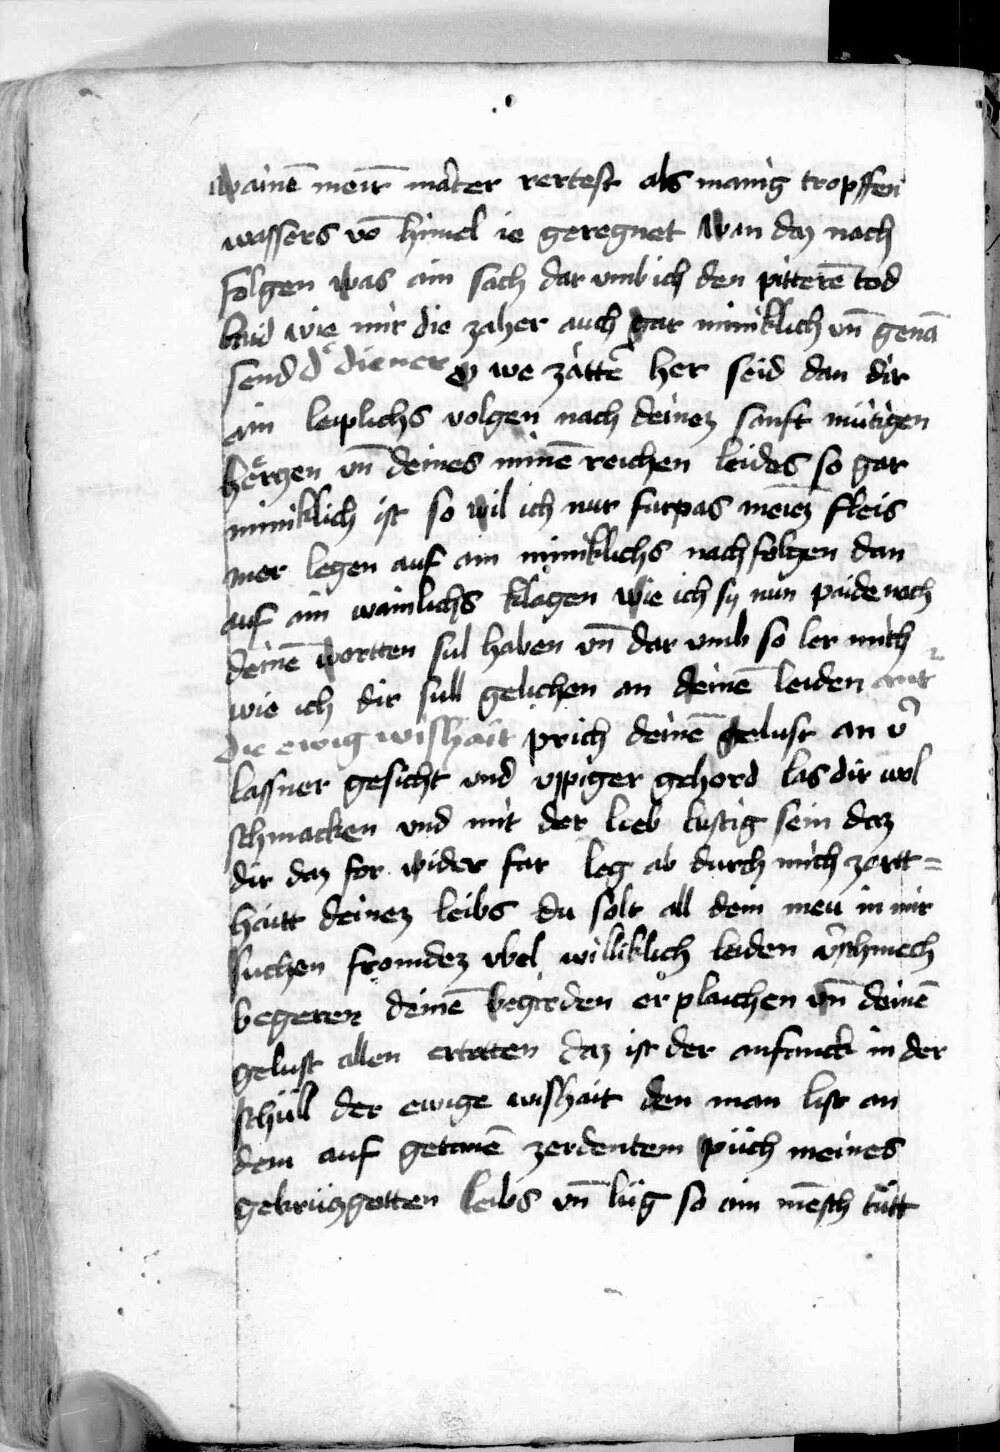 wainē meir̄ mater rertest als manig tropffen
wassers vō himel ie geregnet wan daz noch
folgen was ain sach dar vmb ich den pitterē tod
laid wie mir die zaher auch gar miniklich vn̄ genā
send dͤ diener O we zattē her seid dan dir
ain leiplichs volgen nach deinez sanft mütigen
hertzen vn̄ deines minē reichen leides so gar
miniklich ist so wil ich nur furpas meinez fleis
mer legen auf ain miniklichs nachfolgen dan
auf ain wainlichs klagen wie ich sy nun paide noch
deinē wortten sul haben vn̄ dar vmb so ler mich
wie ich dir sull gelichen an deinē leiden antͬ
die ewig wisshait prich deinē gelust an v̄
lassner gesicht vnd vppiger gehord las dir wol
schmacken vnd mit der lieb lustig sein daz
dir daz for wider far leg ab durch mich zertt=
haitt deinez leibs du solt all dem meü in mir
suchen fromdez vbel williklich leiden v̄schmech
begeren deinē begirden er plaichen vn̄ deinē
gelust allen ertotten daz ist der anfanck in der
schül der ewige wisshait den man list an
dem auf getanē zerdentem püch meines
gekrüzgotten leibs vn̄ lüg so ain mēsch tütt